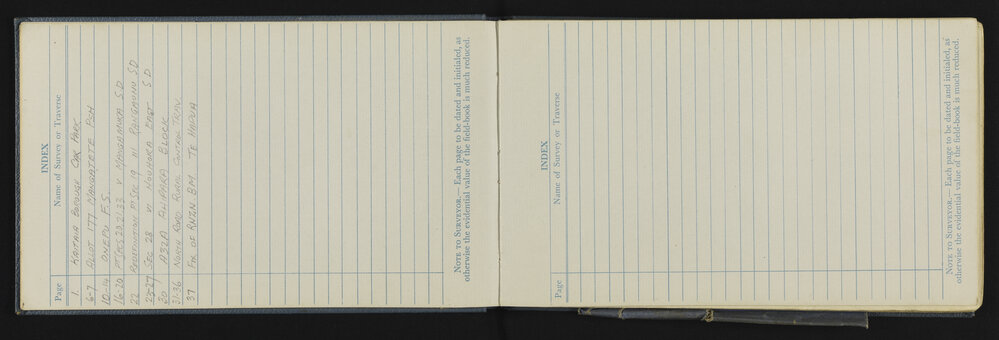 INDEX
Page Name of Survey or Traverse
1. KAITAIA BOROUGH CAR PARK
6-7 ALLOT 177 MANGATETE PSH
10-14 ONEPU F.S.
16-20 PT SECS 20,21,33 V MANGAMUKA S.D
22 REDEFINITION PT SEC 19 III RANGAUNU S.D
23-27 SEC 28 VI HOUHORA EAST S D
30 A32A AHIPARA BLOCK
31-36 NORTH ROAD RURAL CONTROL TRAV
37 FIX OF RNZN BM TE HAPUA
NOTE TO SURVEYOR.— Each page to be dated and initialed, as
otherwise the evidential value of the field-book is much reduced.
INDEX
Page Name of Survey or Traverse
NOTE TO SURVEYOR.— Each page to be dated and initialed, as
otherwise the evidential value of the field-book is much reduced.